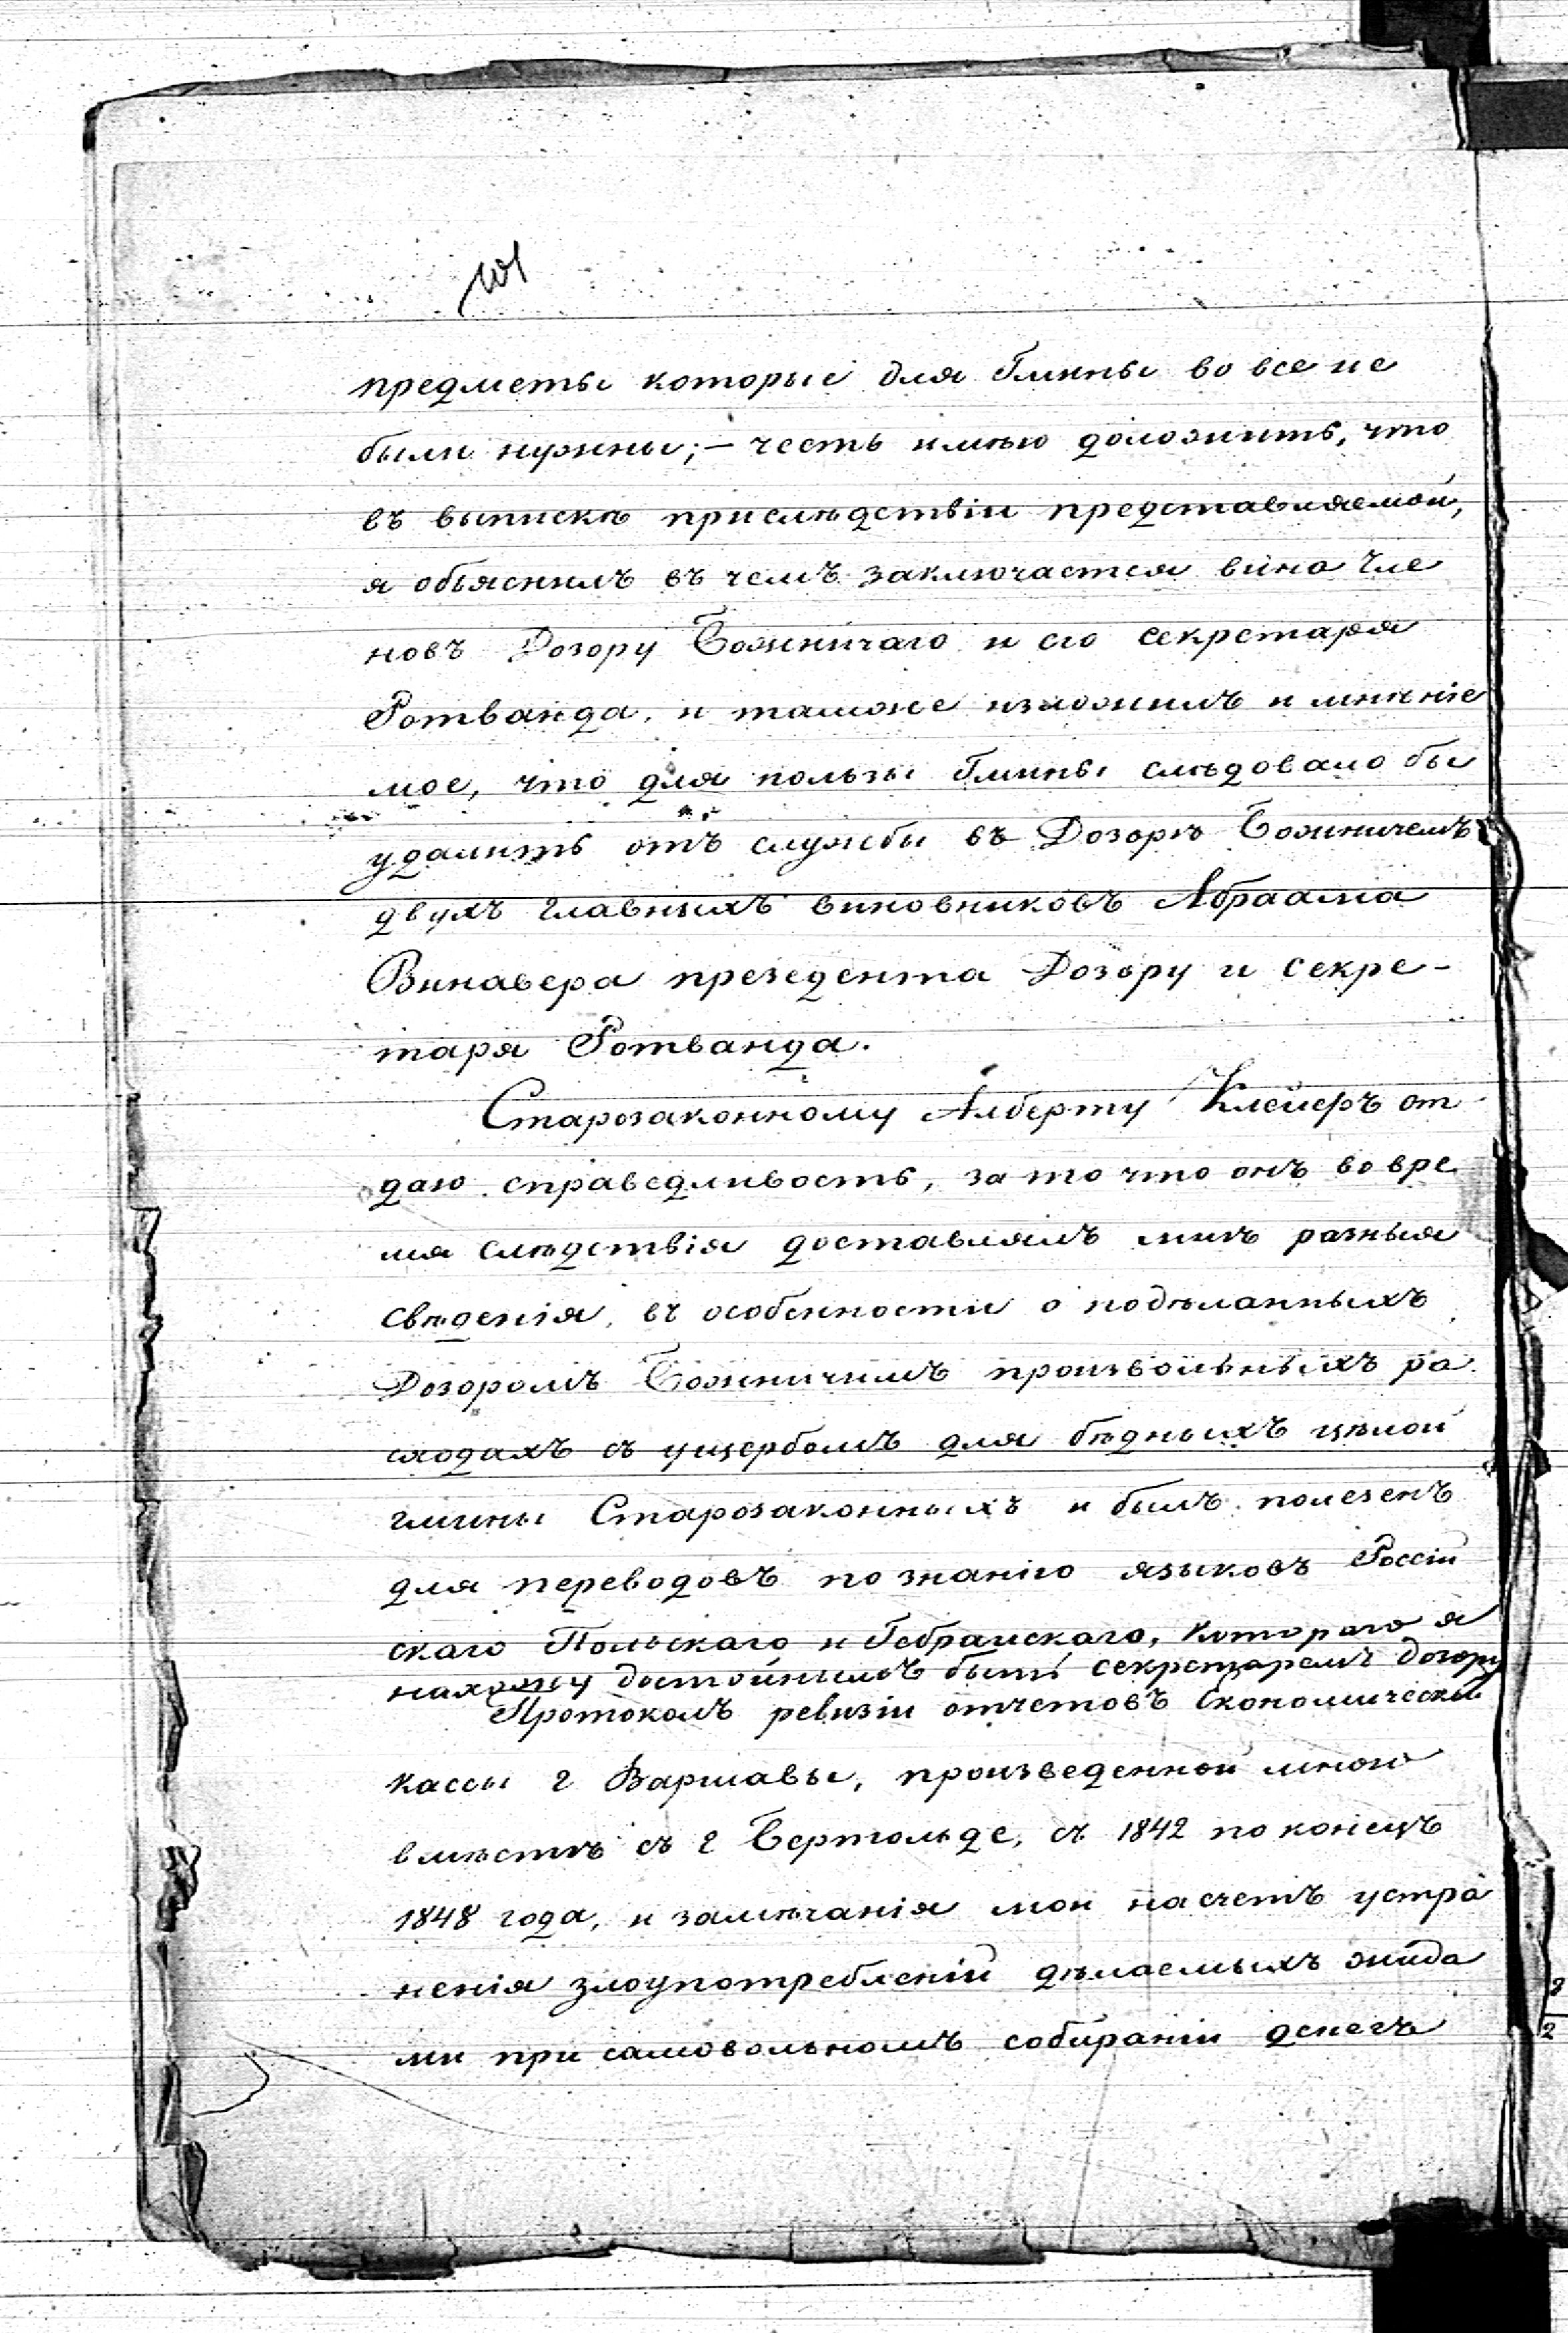 предметы которые для Гмины во все не
были нужны; – честь имѣю доложить, что
въ выпискѣ при слѣдствіи представляемой,
я объяснилъ въ чемъ заключается вина Чле
новъ Дозору Божничаго и его секретаря
Ротванда, и таможе изложилъ и мнѣніе
мое, что для пользы Гмины слѣдовало бы
удалить отъ службы въ Дозорѣ Божничемъ
двухъ главныхъ виновниковъ Абраама
Винавера президента Дозору и секре-
таря Ротванда.
Старозаконному Алберту Клейеръ от
даю справедливость, за то что онъ во вре
мя слѣдствія доставлялъ мнѣ разныя
свѣденія, въ особенности о подѣланныхъ
Дозоромъ Божничимъ произвольныхъ ра
сходахъ съ ущербомъ для бѣдныхъ цѣлой
гмины Старозаконныхъ и былъ полезенъ
для переводовъ по знанію языковъ Россій
скаго Польскаго и Гебрайскаго, котораго я
нахожу достойнымъ быть секретаремъ дозору
Протоколъ ревизіи отчетовъ Економической
кассы г Варшавы, произведенной мною
вмѣстѣ съ г Бертольде, съ 1842 по конецъ
1848 года, и замѣчанія мои насчетъ устра
ненія злоупотребленій дѣлаемыхъ жида
ми при самовольномъ собираніи денегъ